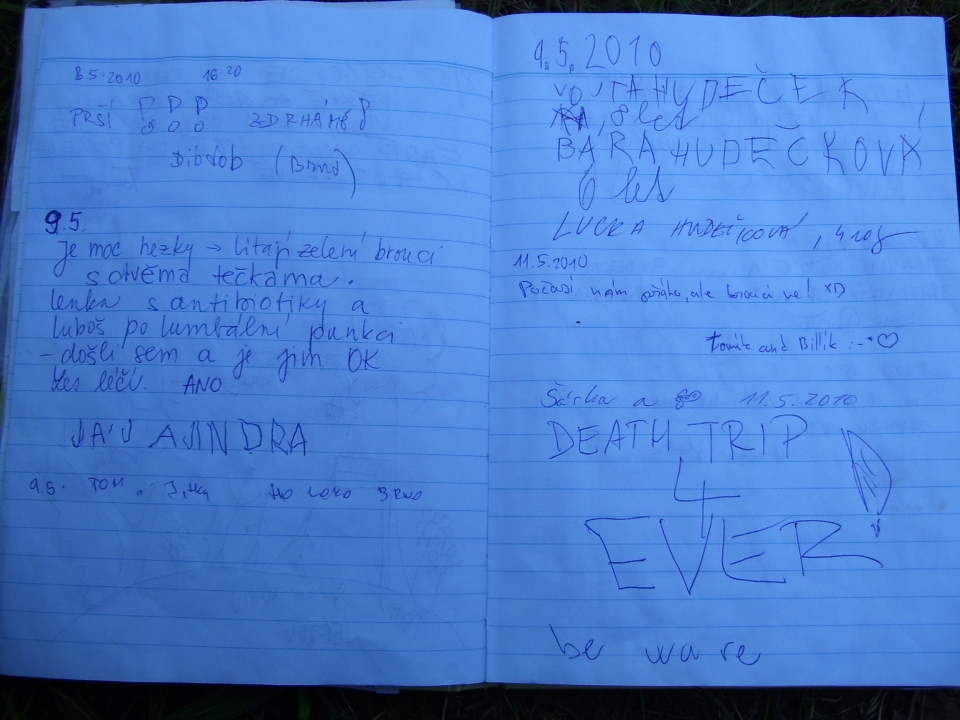 8.5.2010 16:20
PRŠÍ ZDRHÁME
Dibdob (Brno)
9.5.
Je moc hezky → lítají zelení brouci
s dvěma tečkama.
lenka s antibiotiky a
luboš po lumbální punkci
- došli sem a je jim OK
Les léčí. ANO
JÁ JINDRA
9.5. TOM
9.5.2010
VOJTA HUDEČEK
, 8 let
BÁRA HUDEČKOVÁ
6 let
LUCKA HUDEČKOVÁ, 4 roky
11.5.2010
Počasí nám ,ale brouci ne! XD
Tomík and Billík :-*♡
Šárka a 11.5.2010
DEATH TRIP
4
EVER
be ware